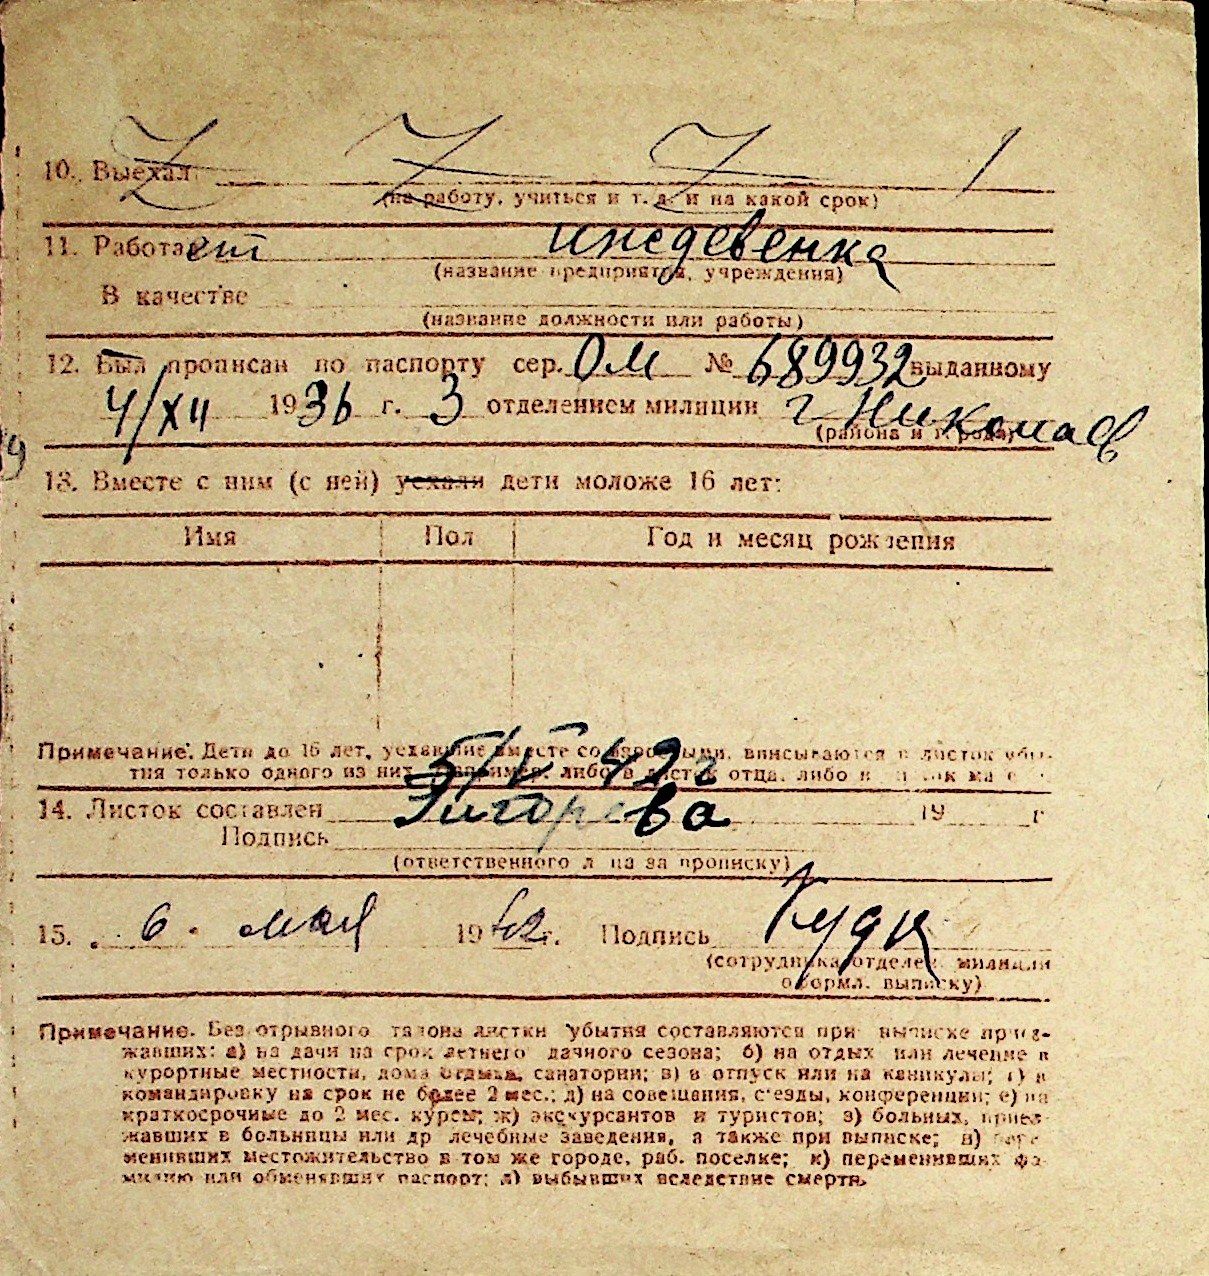 10. Выехал Z Z Z
(на работу, учиться и т. д. и на какой срок)
11. Работает иждевенка
(название предприятия, учреждения)
В качестве
(название должности или работы)
12. Был прописан по паспорту сер. ОМ № 689932 выданному
4/XII 1936 г. 3 отделением милиции г Николаев
(района и города)
13. Вместе с ним (с ней) уехали дети моложе 16 лет:
Имя Пол Год и месяц рождения
Примечание. Дети до 16 лет, уехавшие вместе со взрослыми, вписываются в листок убы-
тия только одного из них, например, либо в листок отца, либо в
5/V 42г
14. Листок составлен 19 г
Подпись
(ответственного лица за прописку)
15. 6. мая 1942г. Подпись
(сотрудника отделен. милиции
оформл. выписку)
Примечание. Без отрывного талона листки убытия составляются при выписке приез-
жавших: а) на дачи на срок летнего дачного сезона; б) на отдых или лечение в
курортные местности, дома отдыха, санатории; в) в отпуск или на каникулы; г) в
командировку на срок не более 2 мес.; д) на совещания, съезды, конференции; е) на
краткосрочные до 2 мес. курсы; ж) экскурсантов и туристов; з) больных, приез-
жавших в больницы или др лечебные заведения, а также при выписке; и) пере-
менивших местожительство в том же городе, раб. поселке; к) переменивших фа-
милию или обменявших паспорт; л) выбывших вследствие смерти.